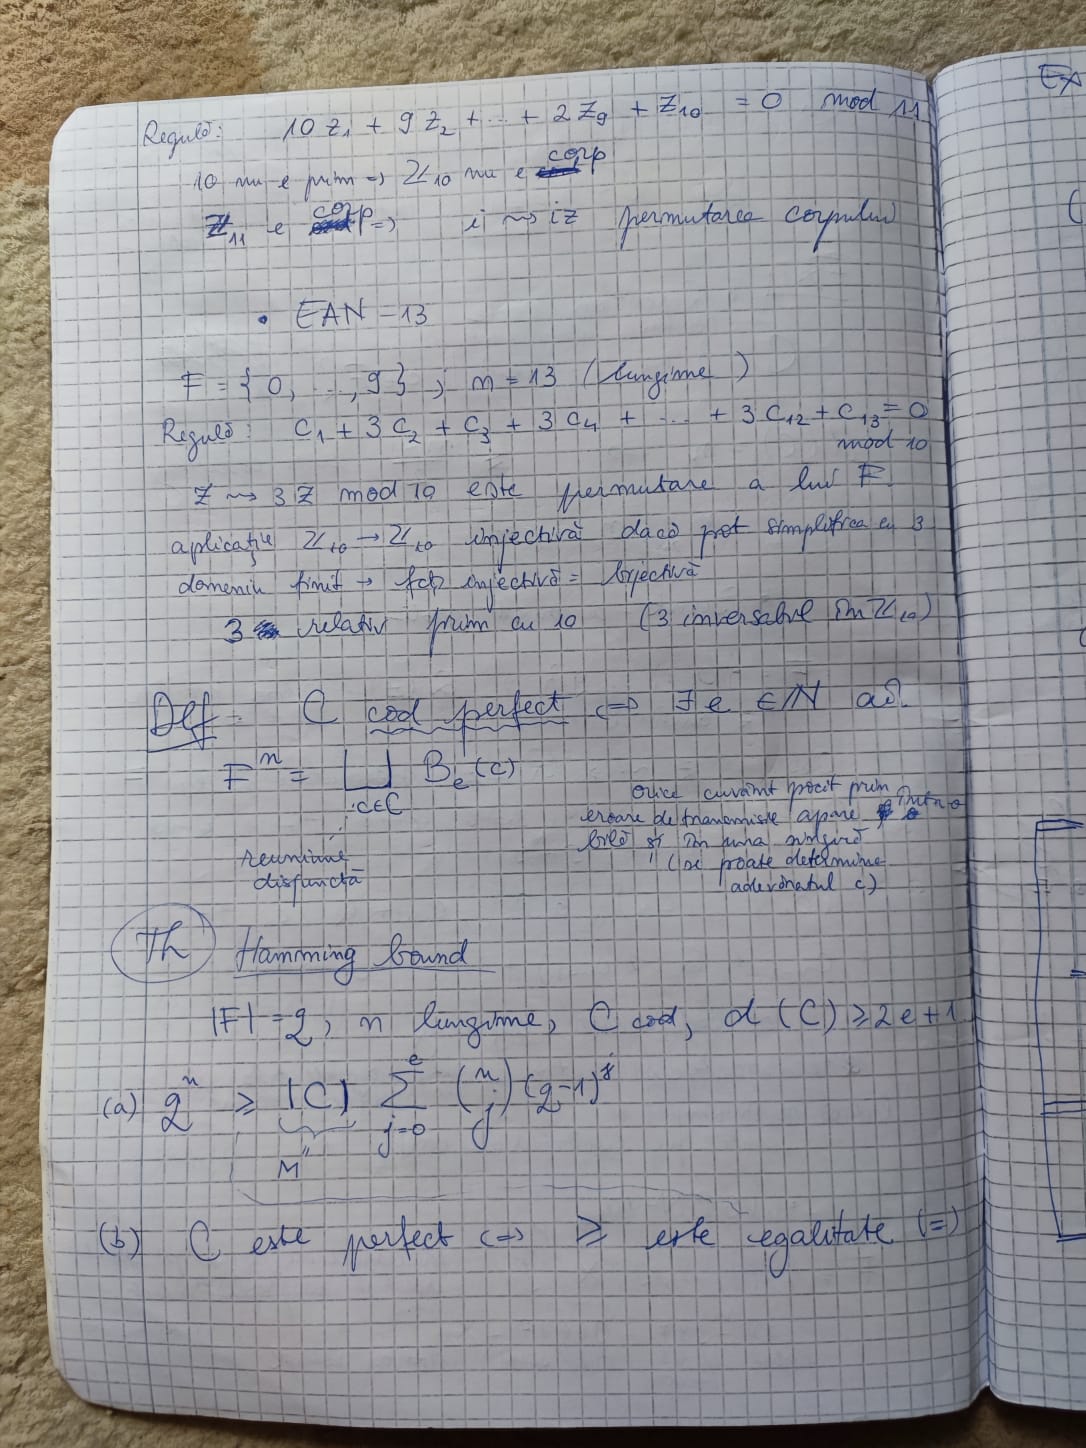 Regulă: 10 z₁ + 9 z₂ + ... + 2 z₉ + z₁₀ = 0 mod 11
10 nu e prim => ℤ₁₀ nu e corp
ℤ₁₁ e corp => i ⇝ iz permutarea corpului
• EAN-13
F = {0, ..., 9} ; n = 13 (lungime)
Regulă: c₁ + 3 c₂ + c₃ + 3 c₄ + ... + 3 c₁₂ + c₁₃ = 0
mod 10
z ⇝ 3z mod 10 este permutare a lui F.
aplicație ℤ₁₀ → ℤ₁₀ injectivă dacă pot simplifica cu 3
domeniu finit → fcț injectivă = bijectivă
3 relativ prim cu 10 (3 inversabil în ℤ₁₀)
Def. C cod perfect <=> ∃ e ∈ ℕ aî.
Fⁿ = ⨆ Bₑ(c)
c∈C
reuniune
disjunctă
orice cuvânt pocit prin
eroare de transmisie apare într-o
bilă și în una singură
(se poate determina
adevăratul c)
Th Hamming bound
|F| = q, n lungime, C cod, d(C) ≥ 2e+1
(a) qⁿ ≥ |C| ∑_{j=0}^{e} (n j) (q-1)^j
M
(b) C este perfect <=> ≥ este egalitate (=)